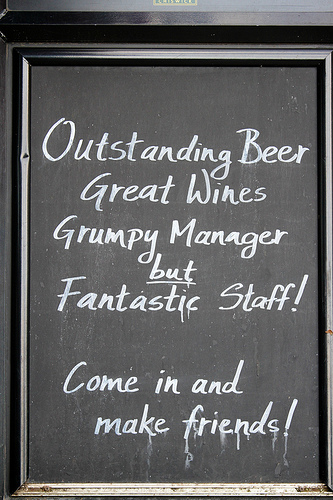 Outstanding Beer
Great Wines
Grumpy Manager
but
Fantastic Staff!
Come in and
make friends!